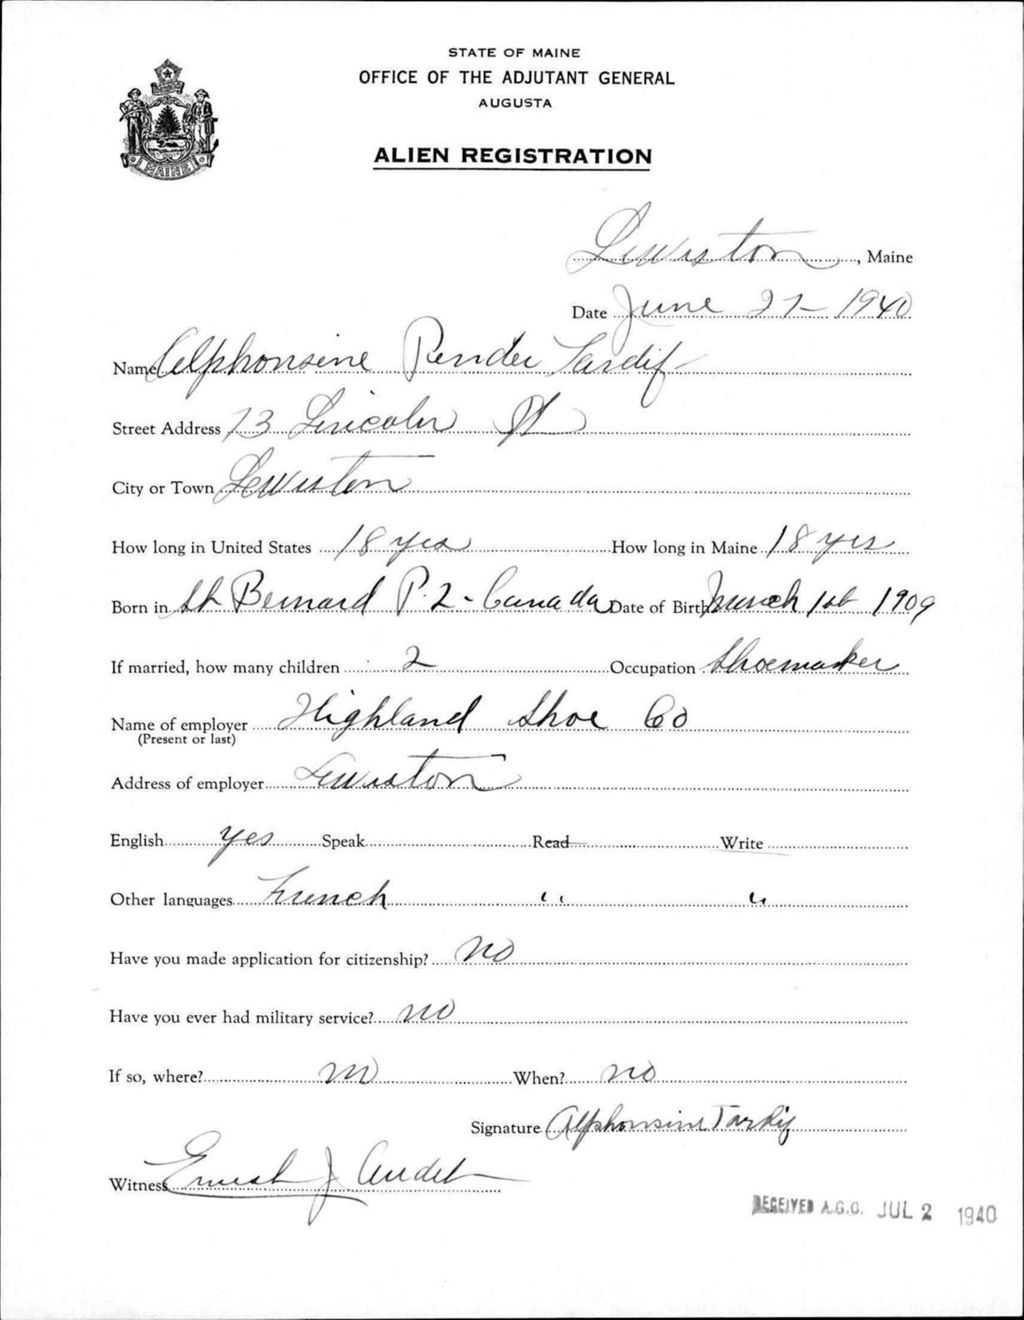 STATE OF MAINE
OFFICE OF THE ADJUTANT GENERAL
AUGUSTA
ALIEN REGISTRATION
MAINE
Lewiston, Maine
Date June 27 - 1940
Name Alphonsine Tardif
Street Address 73 Lincoln St
City or Town Lewiston
How long in United States 18 yrs How long in Maine 18 yrs
Born in St Bernard P.Q - Canada Date of Birth March 1st 1909
If married, how many children 2 Occupation Shoemaker
Name of employer Highland Shoe Co
(Present or last)
Address of employer Lewiston
English yes Speak Read Write
Other languages French " "
Have you made application for citizenship? no
Have you ever had military service? no
If so, where? no When? no
Signature Alphonsine Tardif
Witness Ernest J Audet
RECEIVED A.G.O. JUL 2 1940